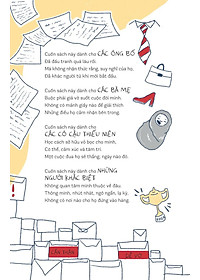 Cuốn sách này dành cho CÁC ÔNG BỐ
Đã đấu tranh quá lâu rồi.
Mà không nhận thức rằng, suy nghĩ của họ,
Đã khác người từ khi mới bắt đầu.
Cuốn sách này dành cho CÁC BÀ MẸ
Buộc phải giả vờ suốt cuộc đời mình.
Không có mảnh giấy nào để giải thích
Những điều họ cảm nhận bên trong.
Cuốn sách này dành cho
CÁC CÔ CẬU THIẾU NIÊN
Học cách sở hữu vỏ bọc cho mình.
Cơ thể, cảm xúc và tâm trí.
Một cuộc đua họ sẽ thắng, ngày nào đó.
Cuốn sách này dành cho NHỮNG
NGƯỜI KHÁC BIỆT
Không quan tâm mình thuộc về đâu.
Thông minh, nhút nhát, ngớ ngẩn, lạ kỳ,
Không có nơi nào cho họ đứng vào hàng.